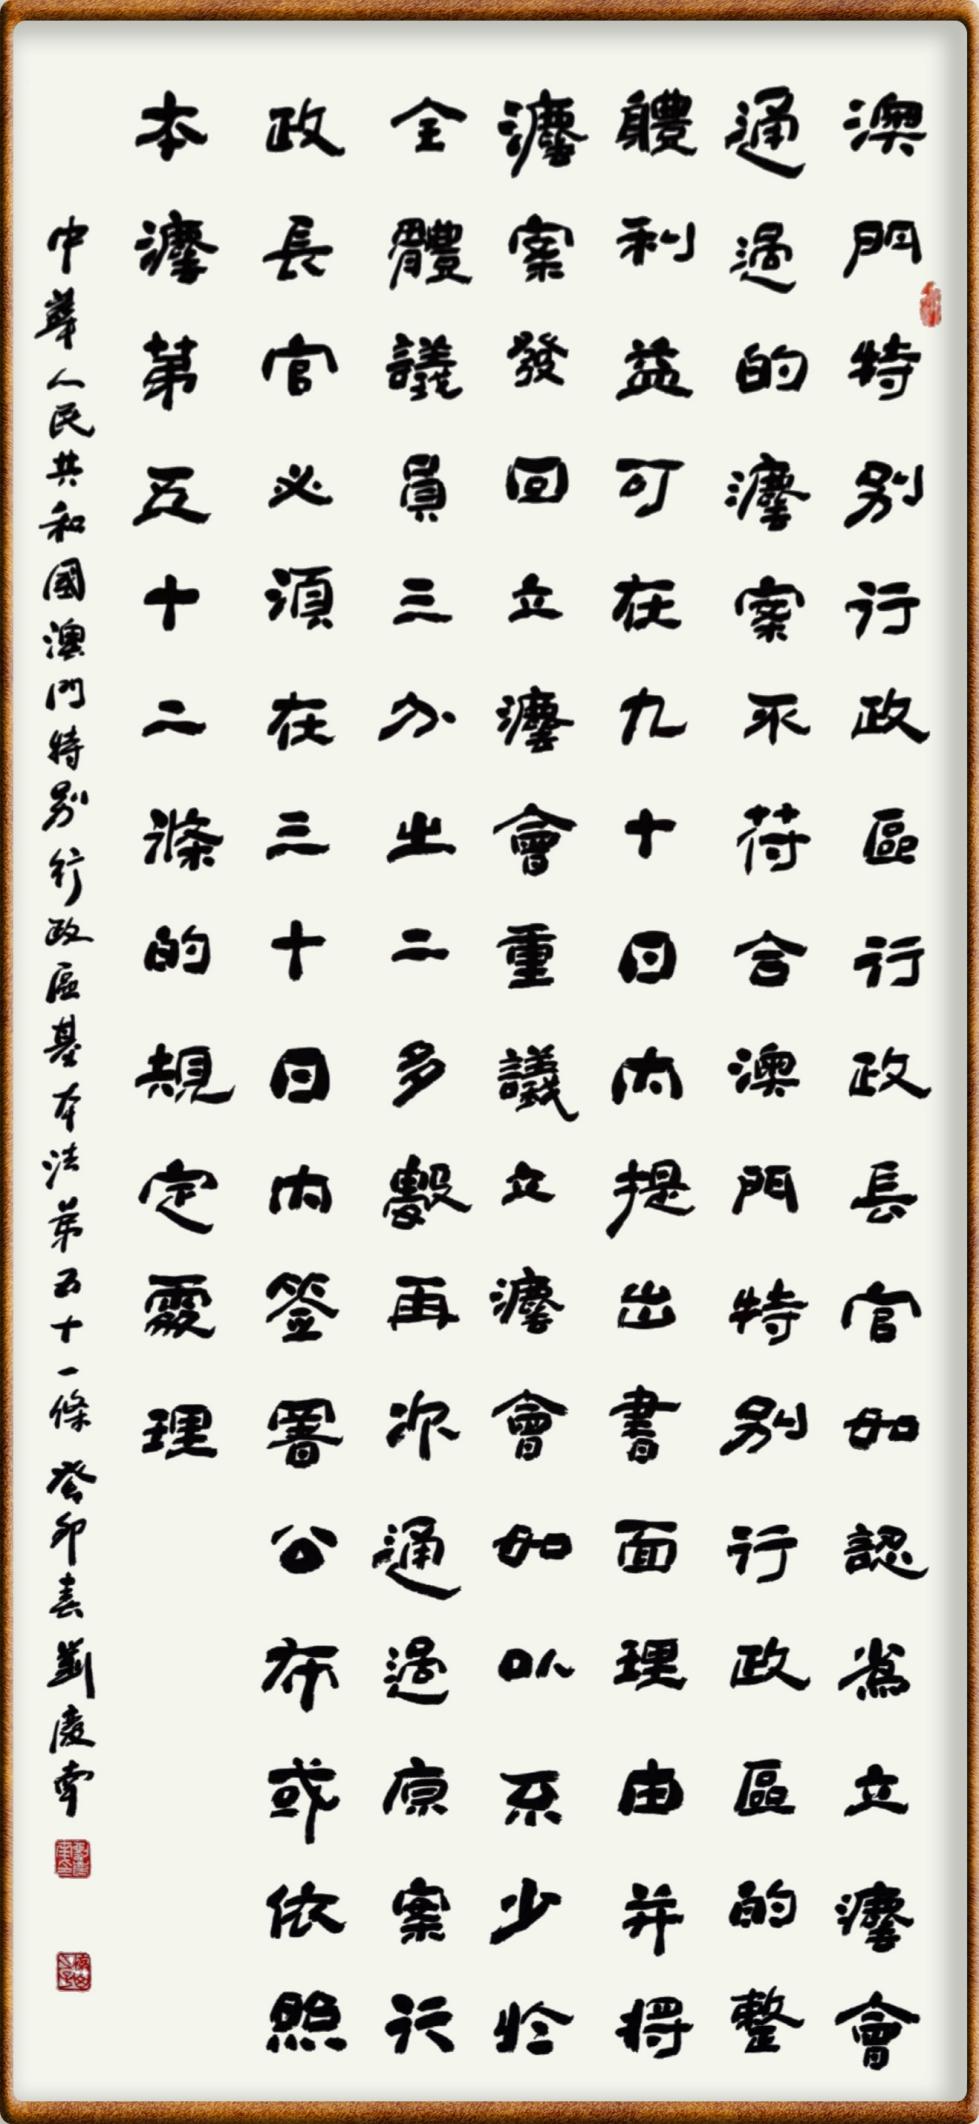 澳門特別行政區行政長官如認為立灋會
通過的灋案不符合澳門特別行政區的整
軆利益可在九十日內提出書面理由并將
灋案發回立灋會重議立灋會如以不少於
全體議員三分之二多數再次通過原案行
政長官必須在三十日內簽署公布或依照
本灋第五十二滌的規定處理
中華人民共和國澳門特別行政區基本法第五十一條 癸卯春 劉慶